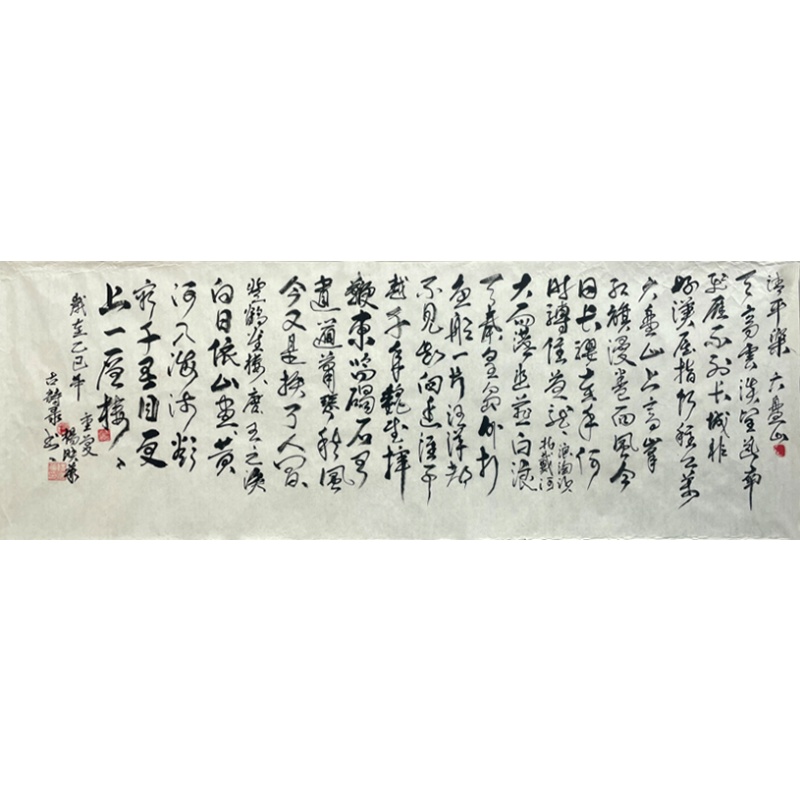 清平樂 六盘山
天高雲淡望斷南
飛雁不到长城非
好漢屈指行程二萬
六盘山上高峰
紅旗漫卷西風今
日长纓在手何
時縛住蒼龍
浪淘沙
北戴河
大雨落幽燕白浪
天秦皇島外打
魚船一片汪洋都
不見知向誰邊往事
越千年魏武揮
鞭東臨碣石有
遺篇蕭瑟秋風
今又是換了人间
登鸛雀樓 唐 王之渙
白日依山盡黄
河入海流欲
窮千里目更
上一層樓
歲在乙巳年
重慶
楊
書